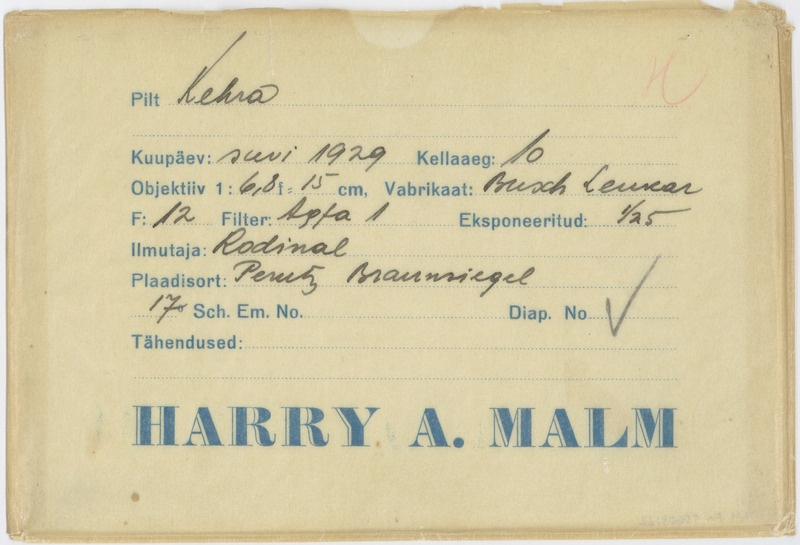 Pilt Kehra
Kuupäev: suvi 1929 Kellaaeg: 10
Objektiiv 1: 6,8 f= 15 cm, Vabrikaat: Busch Leukar
F: 12 Filter: Agfa 1 Eksponeeritud: 1/25
Ilmutaja: Rodinal
Plaadisort: Perutz Braunsiegel
17° Sch. Em. No. Diap. No
Tähendused:
HARRY A. MALM